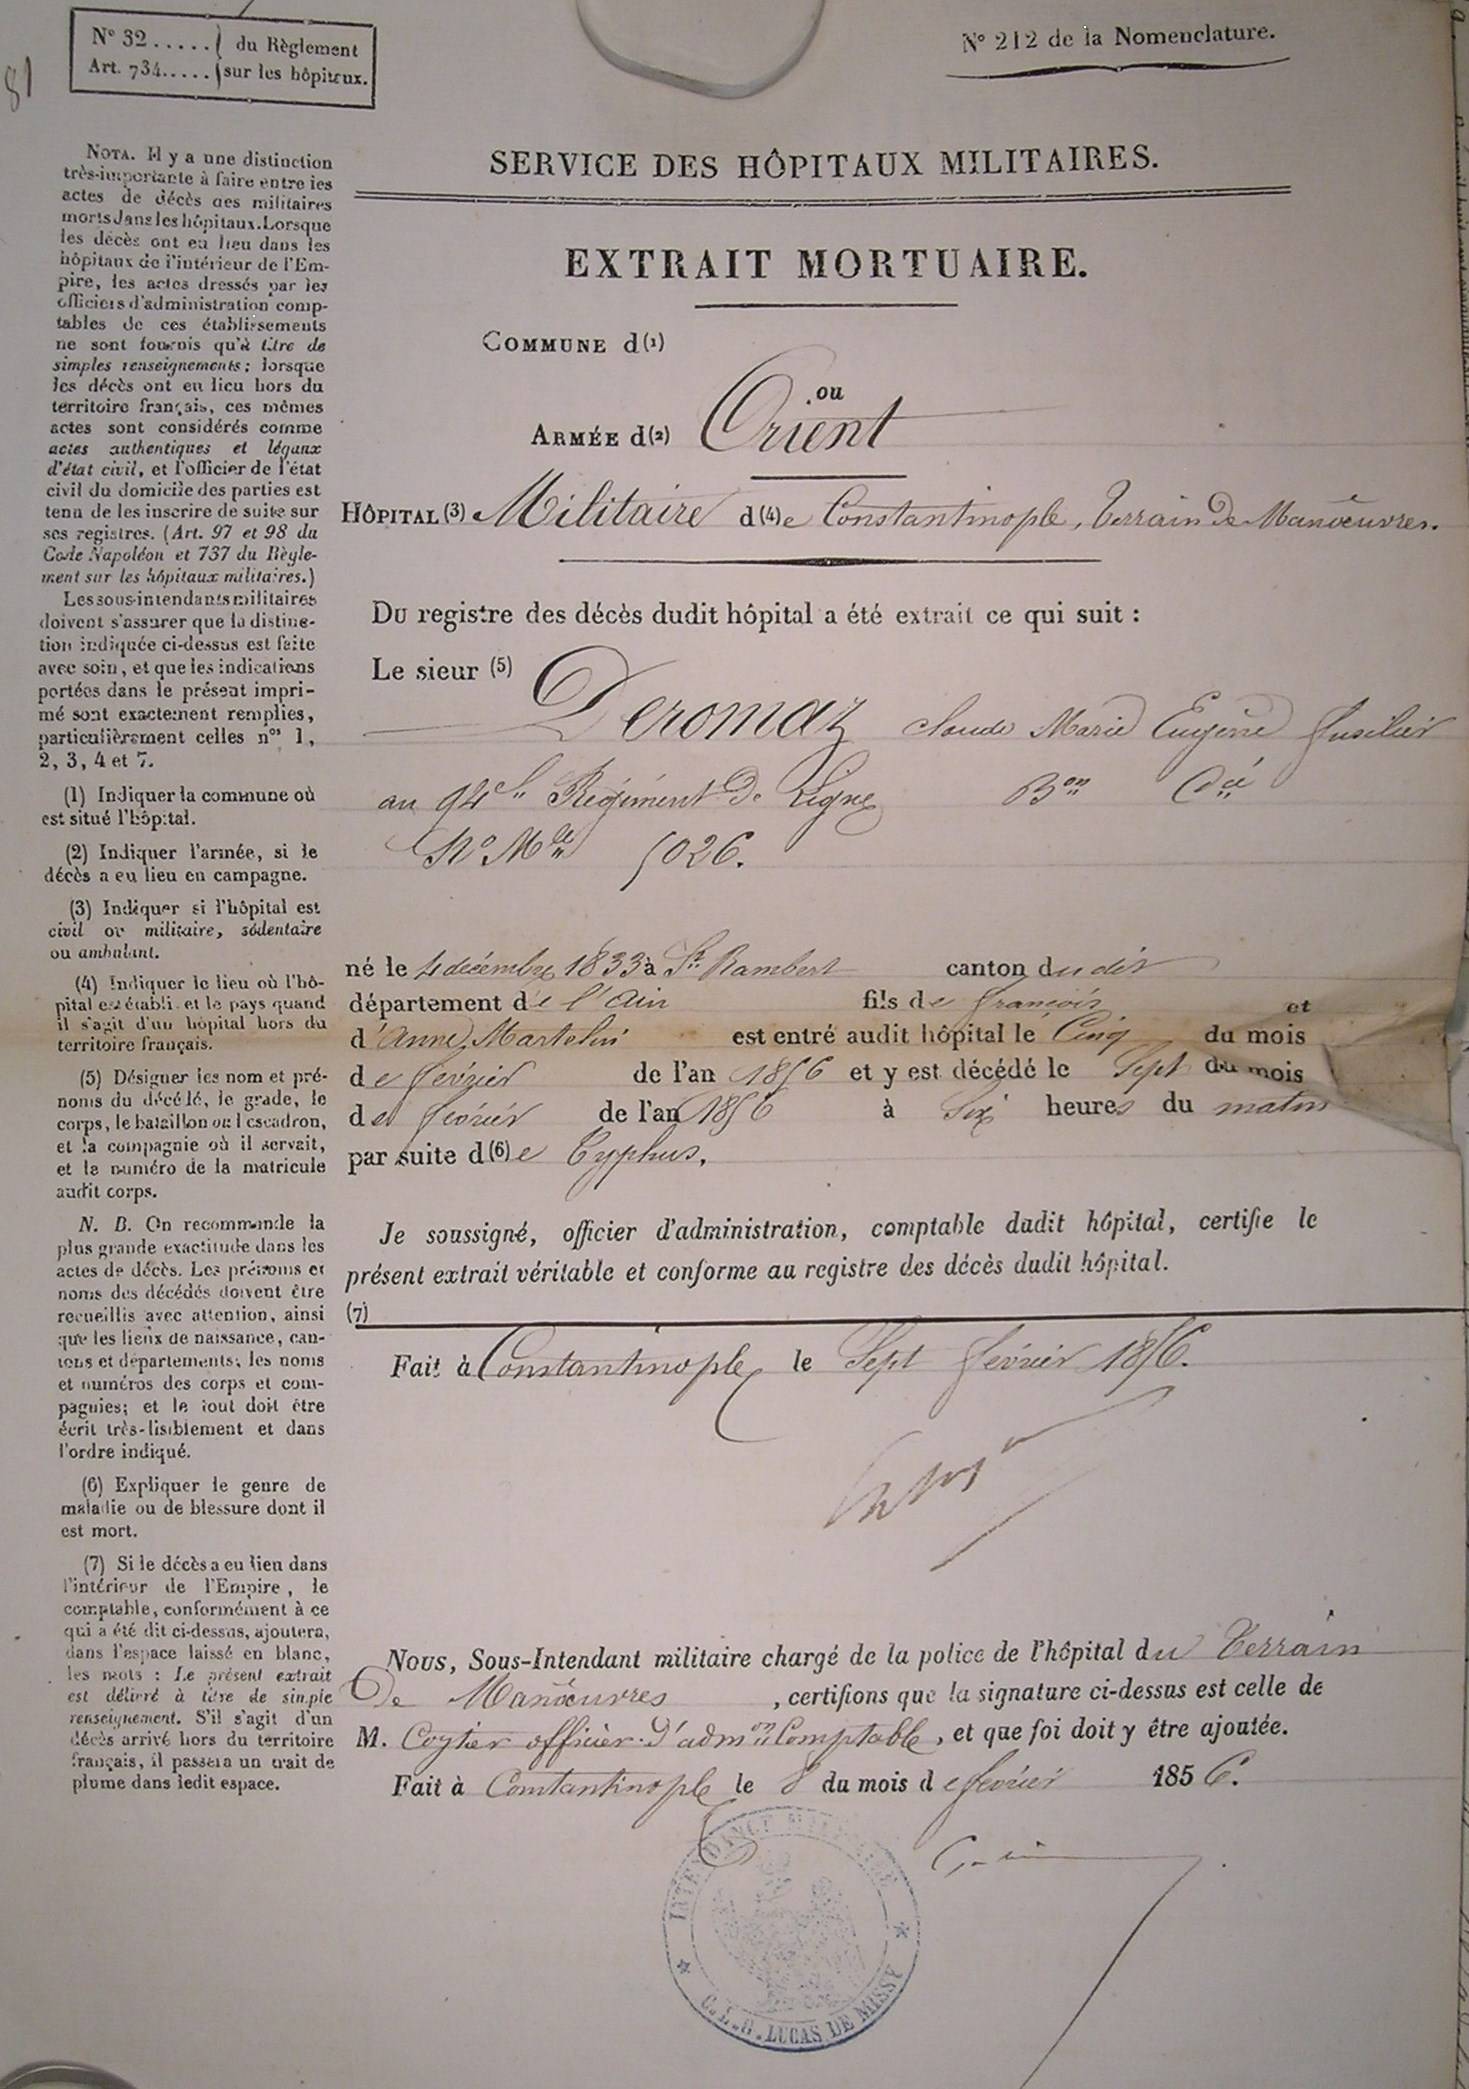 81
N° 32 ..... } du Règlement
Art. 734 ..... } sur les hôpitaux.
N° 212 de la Nomenclature.
SERVICE DES HÔPITAUX MILITAIRES.
EXTRAIT MORTUAIRE.
COMMUNE d(1)
ou
ARMÉE d(2) Orient
HÔPITAL (3) Militaire d(4)e Constantinople, Terrain De Manœuvres.
Du registre des décès dudit hôpital a été extrait ce qui suit :
Le sieur (5)
Deromaz Claude Marie Eugène fusilier
au 94e Régiment De Ligne Bon Cie
No Mle 5026.
né le 4 décembre 1833 à St Rambert canton dudit
département de l'Ain fils de françois et
d'Anne Martelin est entré audit hôpital le Cinq du mois
de février de l'an 1856 et y est décédé le Sept du mois
de février de l'an 1856 à Six heures du matin
par suite d(6)e Typhus.
Je soussigné, officier d'administration, comptable dudit hôpital, certifie le
présent extrait véritable et conforme au registre des décès dudit hôpital.
(7)
Fait à Constantinople le Sept février 1856.
Nous, Sous-Intendant militaire chargé de la police de l'hôpital du Terrain
De Manœuvres , certifions que la signature ci-dessus est celle de
M. Coytier officier d'admon Comptable, et que foi doit y être ajoutée.
Fait à Constantinople le 8 du mois de février 1856.
INTENDANCE MILITAIRE
LUCAS DE MISSY
NOTA. Il y a une distinction
très-importante à faire entre les
actes de décès des militaires
morts dans les hôpitaux. Lorsque
les décès ont eu lieu dans les
hôpitaux de l'intérieur de l'Em-
pire, les actes dressés par les
officiers d'administration comp-
tables de ces établissements
ne sont fournis qu'à titre de
simples renseignements; lorsque
les décès ont eu lieu hors du
territoire français, ces mêmes
actes sont considérés comme
actes authentiques et légaux
d'état civil, et l'officier de l'état
civil du domicile des parties est
tenu de les inscrire de suite sur
ses registres. (Art. 97 et 98 du
Code Napoléon et 737 du Règle-
ment sur les hôpitaux militaires.)
Les sous-intendants militaires
doivent s'assurer que la distinc-
tion indiquée ci-dessus est faite
avec soin, et que les indications
portées dans le présent impri-
mé sont exactement remplies,
particulièrement celles nos 1,
2, 3, 4 et 7.
(1) Indiquer la commune où
est situé l'hôpital.
(2) Indiquer l'armée, si le
décès a eu lieu en campagne.
(3) Indiquer si l'hôpital est
civil ou militaire, sédentaire
ou ambulant.
(4) Indiquer le lieu où l'hô-
pital est établi et le pays quand
il s'agit d'un hôpital hors du
territoire français.
(5) Désigner les nom et pré-
noms du décédé, le grade, le
corps, le bataillon ou l'escadron,
et la compagnie où il servait,
et le numéro de la matricule
audit corps.
N. B. On recommande la
plus grande exactitude dans les
actes de décès. Les prénoms et
noms des décédés doivent être
recueillis avec attention, ainsi
que les lieux de naissance, can-
tons et départements; les noms
et numéros des corps et com-
pagnies; et le tout doit être
écrit très-lisiblement et dans
l'ordre indiqué.
(6) Expliquer le genre de
maladie ou de blessure dont il
est mort.
(7) Si le décès a eu lieu dans
l'intérieur de l'Empire, le
comptable, conformément à ce
qui a été dit ci-dessus, ajoutera,
dans l'espace laissé en blanc,
les mots : Le présent extrait
est délivré à titre de simple
renseignement. S'il s'agit d'un
décès arrivé hors du territoire
français, il passera un trait de
plume dans ledit espace.